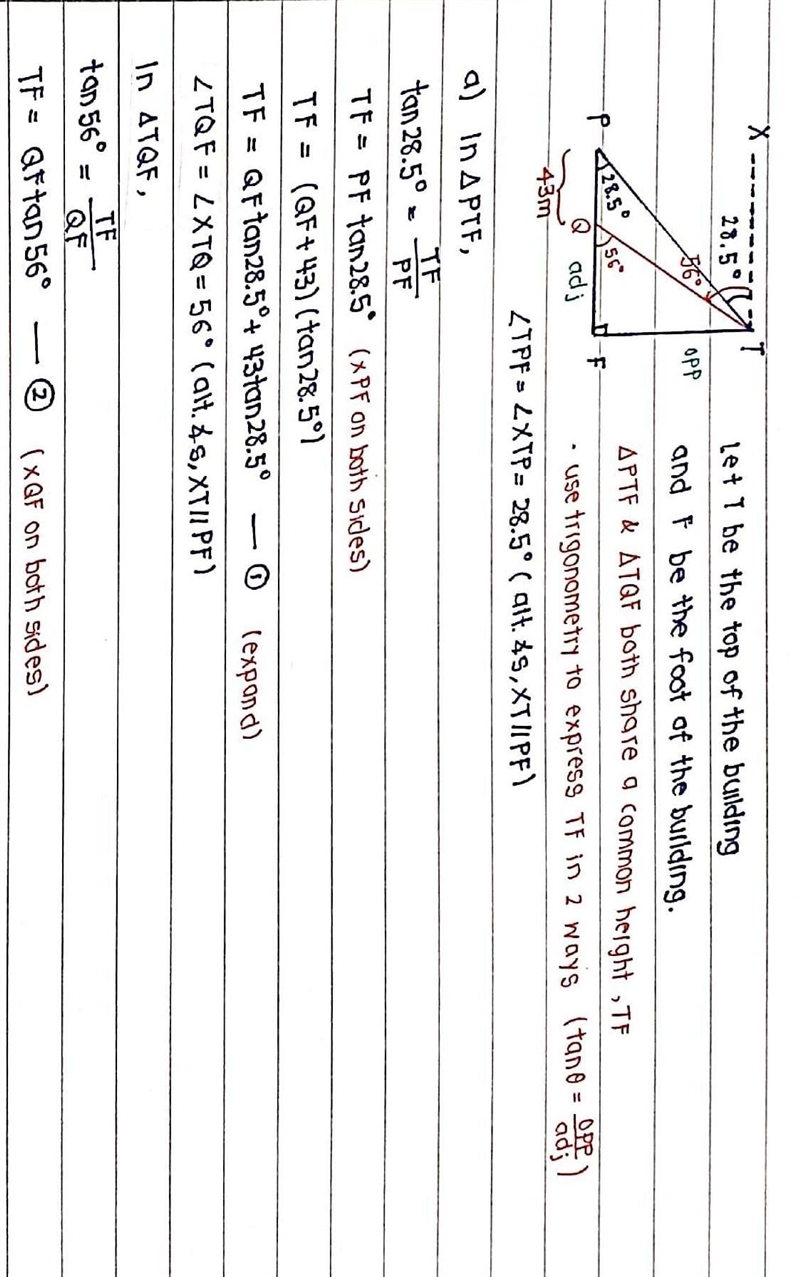 X
28.5°
T
56°
opp
28.5°
56°
P
Q
adj
F
43m
Let T be the top of the building
and F be the foot of the building.
ΔPTF & ΔTQF both share a common height, TF
· use trigonometry to express TF in 2 ways (tanθ = opp/adj)
∠TPF = ∠XTP = 28.5° (alt. ∡s, XT//PF)
a) In ΔPTF,
tan28.5° = TF/PF
TF = PF tan28.5° (xPF on both sides)
TF = (QF+43)(tan28.5°)
TF = QFtan28.5° + 43tan28.5° — ① (expand)
∠TQF = ∠XTQ = 56° (alt. ∡s, XT//PF)
In ΔTQF,
tan56° = TF/QF
TF = QFtan56° — ② (xQF on both sides)